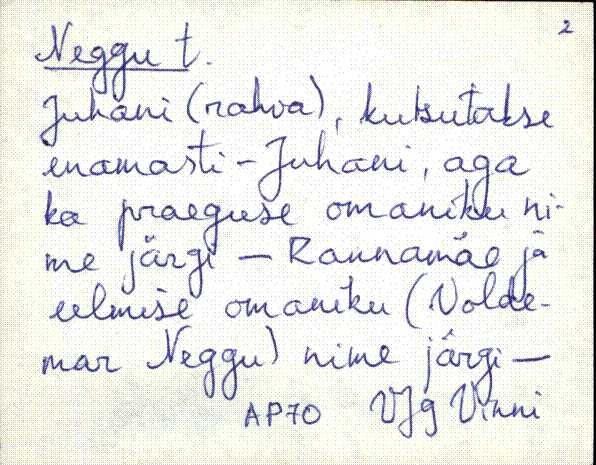 2
Neggu t.
Juhani (rahva), kutsutakse
enamasti - Juhani, aga
ka praeguse omaniku ni-
me järgi — Rannamäe ja
eelmise omaniku (Volde-
mar Neggu) nime järgi —
AP70 VJg Vinni